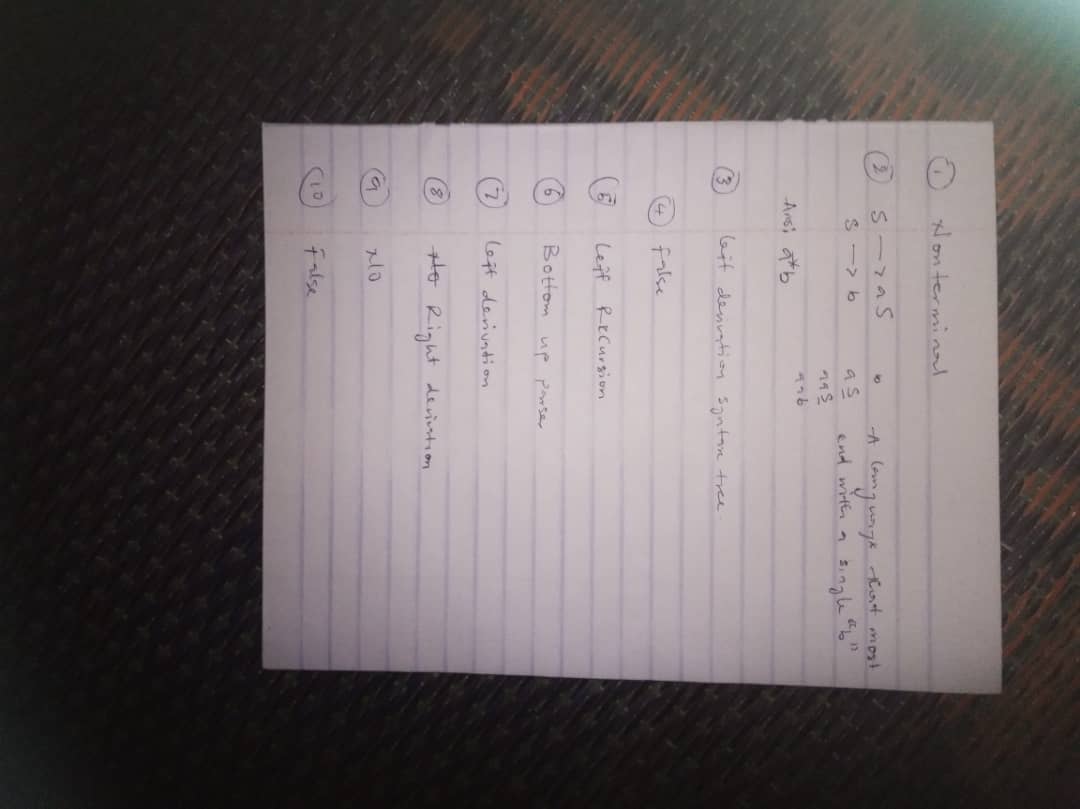 ① Nonterminal
② S → aS b A language that most
S → b aS end with a single "b"
aaS
Ans; a*b aab
③ Left derivation syntax tree.
④ False
⑤ Left Recursion
⑥ Bottom up parser
⑦ Left derivation
⑧ Right derivation
⑨ NO
⑩ False